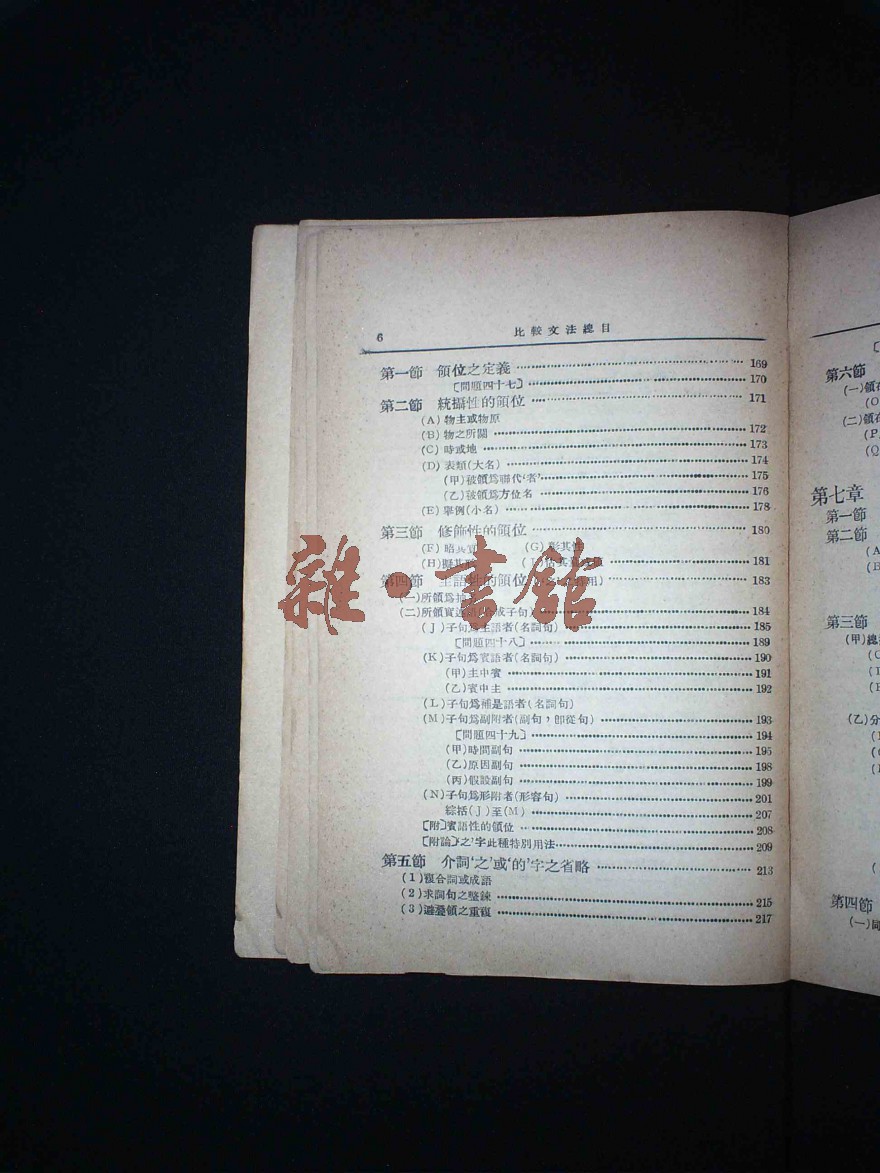 6 比較文法總目
第一節 領位之定義 169
〔問題四十七〕 170
第二節 統攝性的領位 171
(A) 物主或物原
(B) 物之所關 172
(C) 時或地 173
(D) 表類(大名) 174
(甲)被領爲聯代‘者’ 175
(乙)被領爲方位名 176
(E) 舉例(小名) 178
第三節 修飾性的領位 180
(F) (G)
(H) 181
第四節 主語性的領位 183
(一)所領爲
(二)所領實 184
(J) 子句爲主語者(名詞句) 185
〔問題四十八〕 189
(K)子句爲賓語者(名詞句) 190
(甲)主中賓 191
(乙)賓中主 192
(L)子句爲補足語者(名詞句)
(M)子句爲副附者(副句，卽從句) 193
〔問題四十九〕 194
(甲)時間副句 195
(乙)原因副句 198
(丙)假設副句 199
(N)子句爲形附者(形容句) 201
綜括(J)至(M) 207
〔附〕賓語性的領位 208
〔附論〕‘之’字此種特別用法 209
第五節 介詞‘之’或‘的’字之省略 213
(1)複合詞或成語
(2)求詞句之整鍊 215
(3)避疊領之重複 217
第六節
(一)領在
(二)領在
第七章
第一節
第二節
第三節
(甲)總
(乙)分
第四節
(一)同
雜·書館